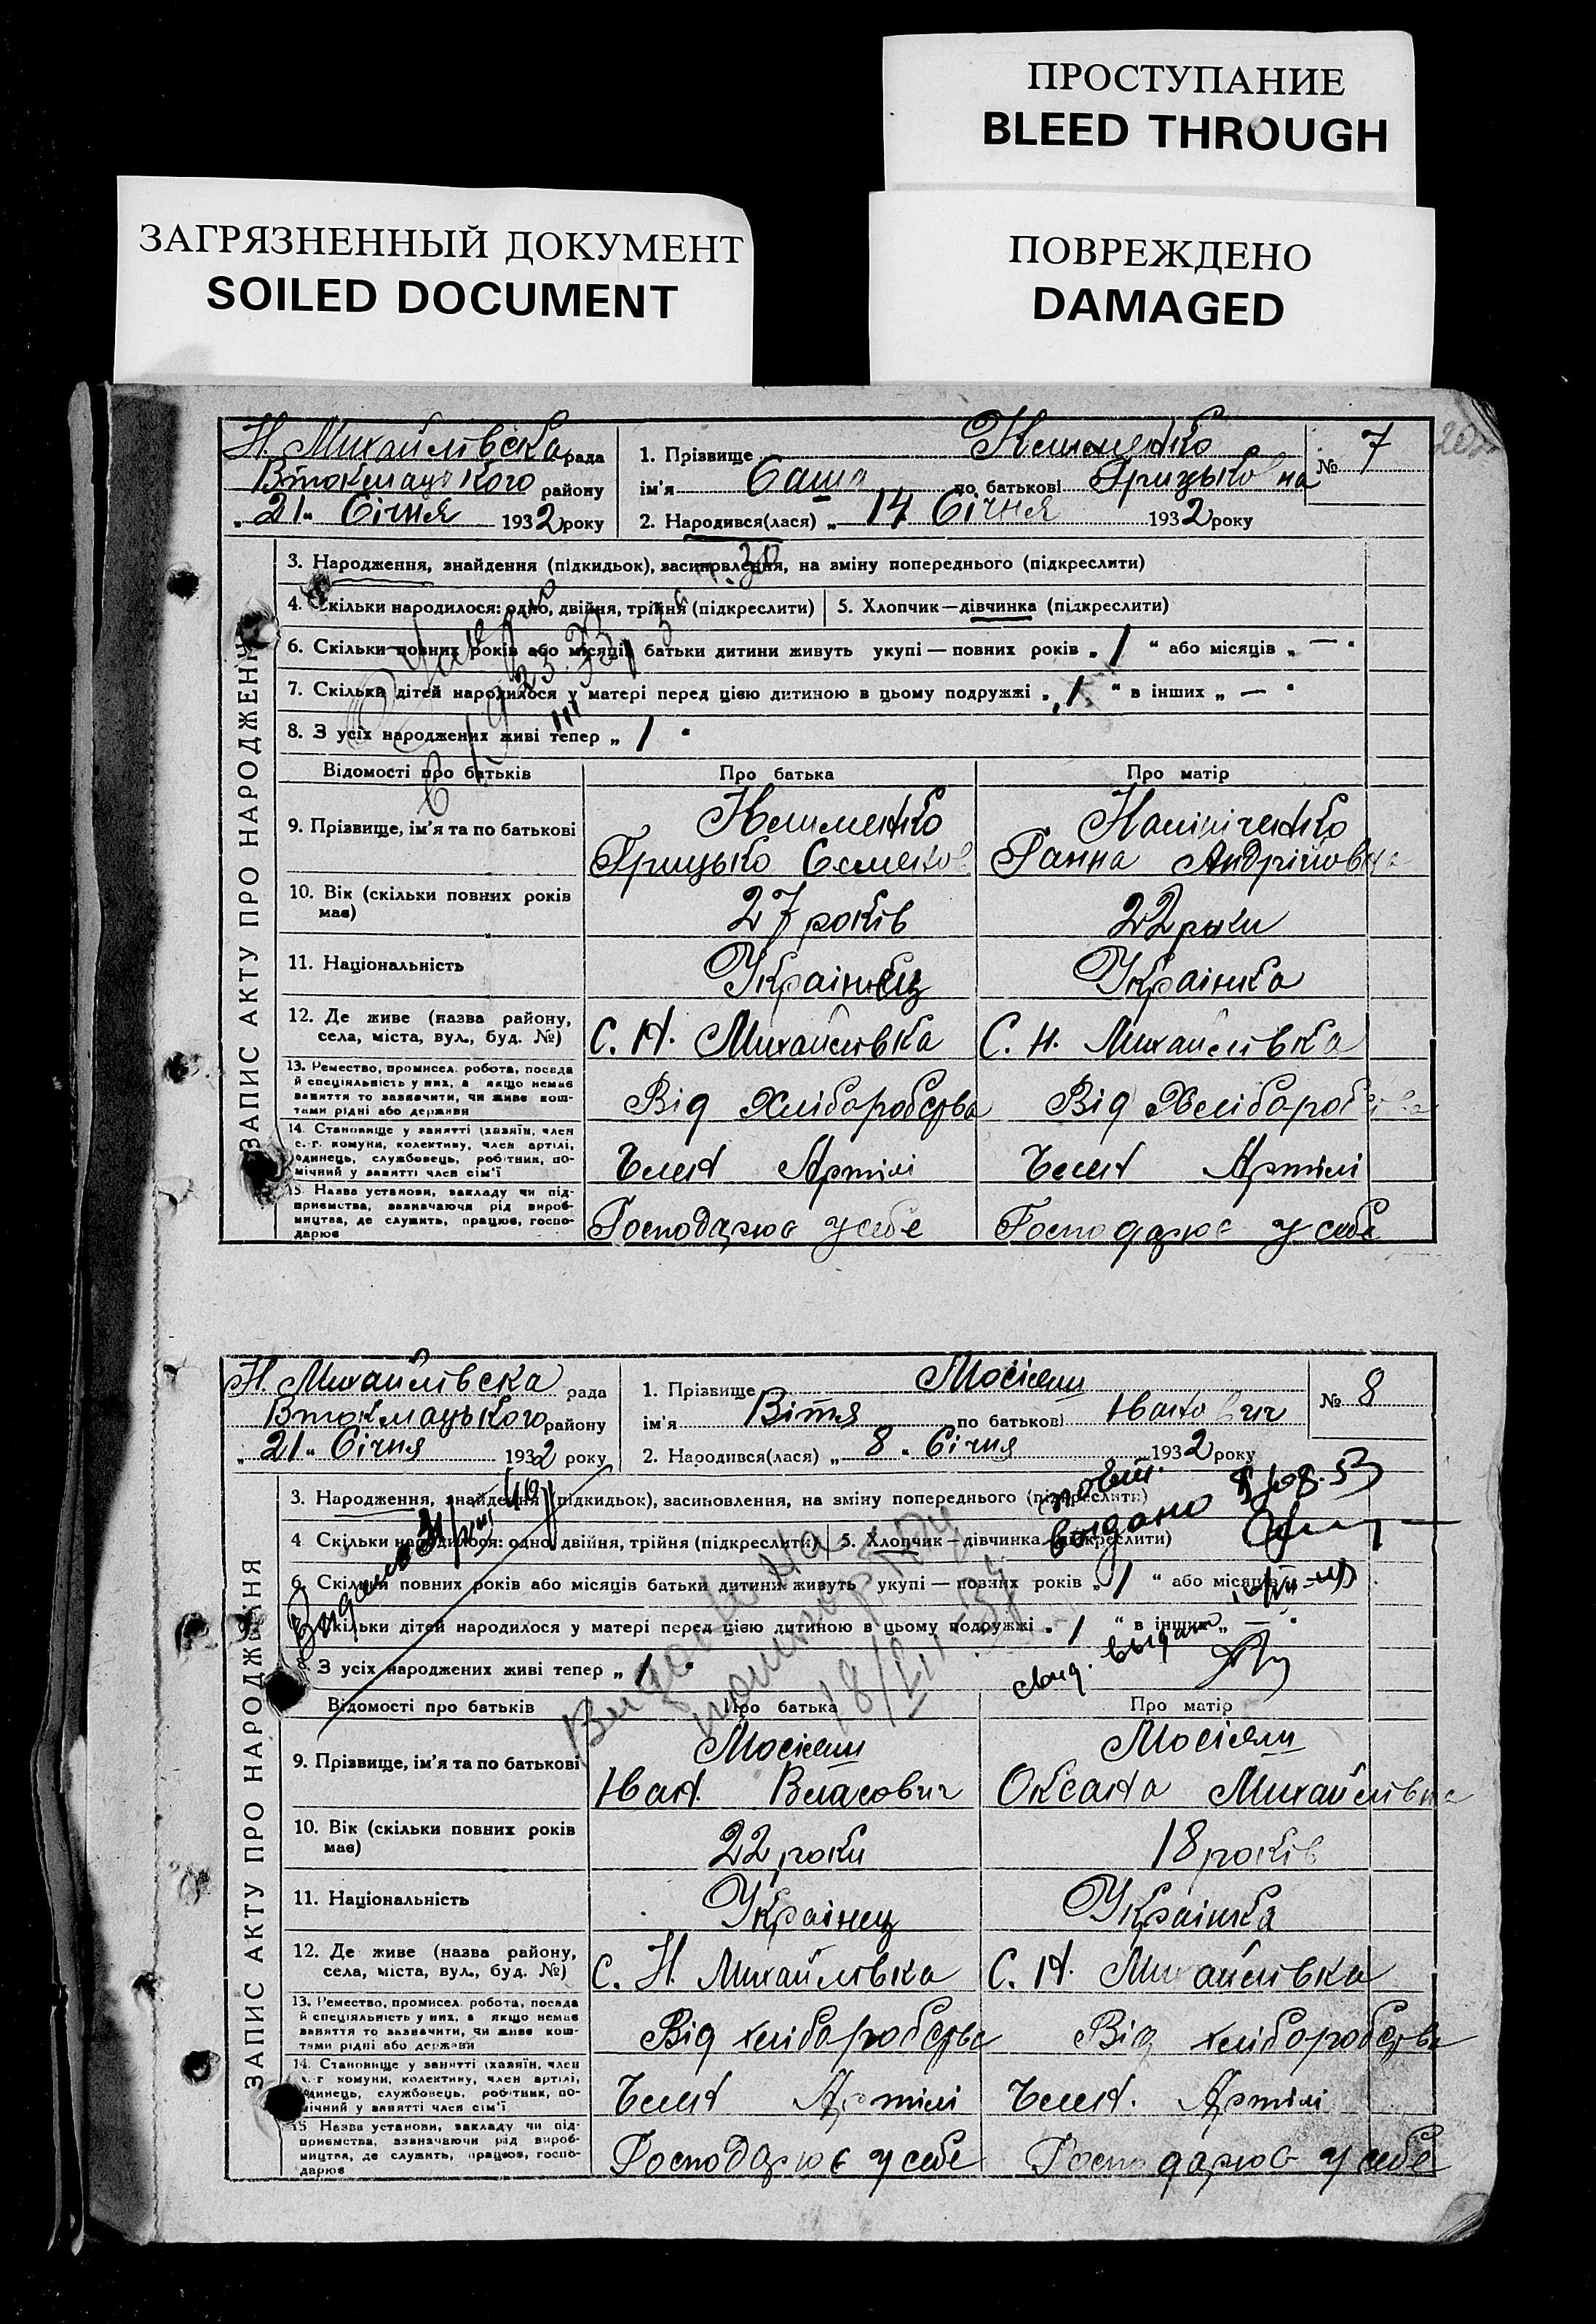 ПРОСТУПАНИЕ
BLEED THROUGH
ЗАГРЯЗНЕННЫЙ ДОКУМЕНТ
SOILED DOCUMENT
ПОВРЕЖДЕНО
DAMAGED
ЗАПИС АКТУ ПРО НАРОДЖЕННЯ
Н. Михайлівска рада
Втокмацького району
„21“ Січня 1932 року
1. Прізвище
ім'я Саша по батькові Грицьковна
№ 7
2. Народився(лася) „ 14 Січня 1932 року
3. Народження, знайдення (підкидьок), засиновлення, на зміну попереднього (підкреслити)
4. Скільки народилося: одно, двійня, трійня (підкреслити)
5. Хлопчик—дівчинка (підкреслити)
6. Скільки повних років або місяців батьки дитини живуть укупі — повних років „ 1 “ або місяців „ — “
7. Скільки дітей народилося у матері перед цією дитиною в цьому подружжі „ 1 “ в інших „ — “
8. З усіх народжених живі тепер „ 1 “
Відомості про батьків
Про батька
Про матір
9. Прізвище, ім'я та по батькові
Грицько Семенов
Ганна Андрійовна
10. Вік (скільки повних років має)
27 років
22 роки
11. Національність
Українець
Українка
12. Де живе (назва району, села, міста, вул., буд. №)
С. Н. Михайлівка
С. Н. Михайлівка
13. Ремество, промисел, робота, посада й спеціяльність у них, а якщо немає заняття то зазначити, чи живе коштами рідні або держави
Від Хліборобства
Від Хліборобства
14. Становище у занятті (хазяїн, член с.-г. комуни, колективу, член артілі, одинець, службовець, робітник, помічний у занятті член сім'ї
Член Артілі
Член Артілі
15. Назва установи, закладу чи підприємства, зазначаючи рід виробництва, де служить, працює, господарює
Господарює у себе
Господарює у себе
ЗАПИС АКТУ ПРО НАРОДЖЕННЯ
Н. Михайлівска рада
Втокмацького району
„21“ Січня 1932 року
1. Прізвище Мосіяш
ім'я Вітя по батькові Иванович
№ 8
2. Народився(лася) „ 8 “ Січня 1932 року
3. Народження, знайдення (підкидьок), засиновлення, на зміну попереднього (підкреслити)
4. Скільки народилося: одно, двійня, трійня (підкреслити)
5. Хлопчик — дівчинка (підкреслити)
6. Скільки повних років або місяців батьки дитини живуть укупі — повних років „ 1 “ або місяців
7. Скільки дітей народилося у матері перед цією дитиною в цьому подружжі „ 1 “ в інших „ — “
8. З усіх народжених живі тепер „ 1 “
Відомості про батьків
Про батька
Про матір
9. Прізвище, ім'я та по батькові
Мосіяш
Иван Власович
Мосіяш
Оксана Михайлівна
10. Вік (скільки повних років має)
22 роки
18 років
11. Національність
Українец
Українка
12. Де живе (назва району, села, міста, вул., буд. №)
С. Н. Михайлівка
С. Н. Михайлівка
13. Ремество, промисел, робота, посада й спеціяльність у них, а якщо немає заняття то зазначити, чи живе коштами рідні або держави
Від хліборобства
Від хліборобства
14. Становище у занятті (хазяїн, член с.-г. комуни, колективу, член артілі, одинець, службовець, робітник, помічний у занятті член сім'ї
Член Артілі
Член. Артілі
15. Назва установи, закладу чи підприємства, зазначаючи рід виробництва, де служить, працює, господарює
Господарює у себе
Господарює у себе